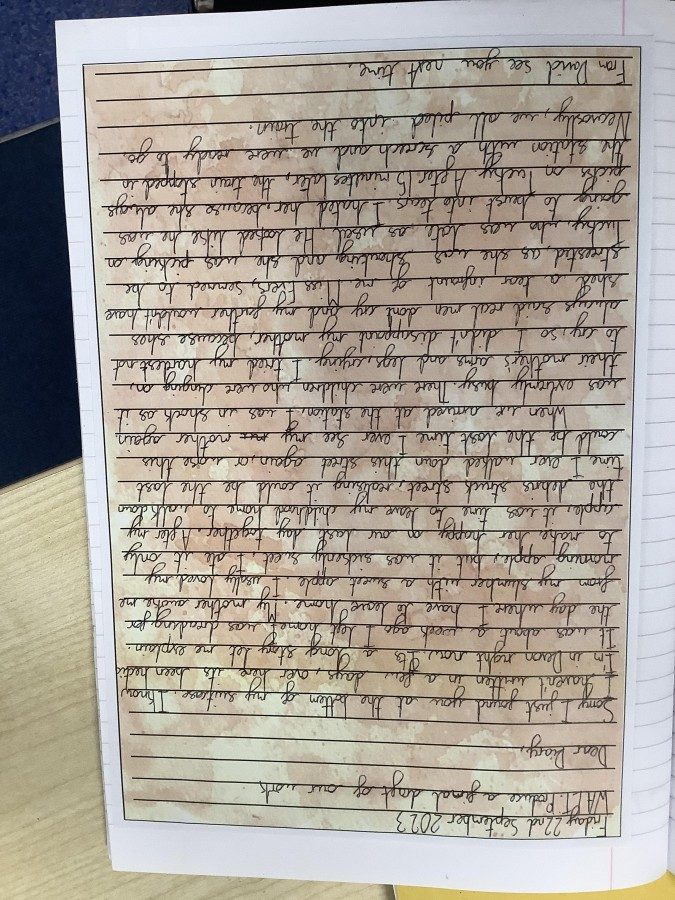 Friday 22nd September 2023
WALT: Produce a final draft of our work
Dear Diary,
Sorry I just found you at the bottom of my suitcase. I know
I haven't written in a few days, over here its been hectic
I'm in Devon right now, Its a long story let me explain.
It was about a week ago I left home. I was dreading for
the day where I have to leave home. My mother awoke me
from my slumber with a sweet apple. I usally loved my
morning apple, but it was sickenly sweet, I ate it only
to make her happy on our last day together. After my
apple, it was time to leave my childhood home to walk down
the debris struck street, realising it could be the last
time I ever walked down this street again, or worse this
could be the last time I ever see my mother again
When we arrived at the station, I was in shock as it
was extremly busy. There were children who were clinging on,
their mother's arms and legs, crying. I tried my hardest not
to cry, so I didn't disappoint my mother, because shes
always said real men dont cry and my father wouldn't have
shed a tear infront of me. Miss Evers, seemed to be
stressed, as she was shouting and she was picking on
Tucky who was late as usual. He looked like he was
going to burst into tears. I hated her, because she always
picks on Tucky. After 15 minutes later, the train stopped in
the station with a screech and we were ready to go.
Nervously, we all piled into the train.
From David see you next time.